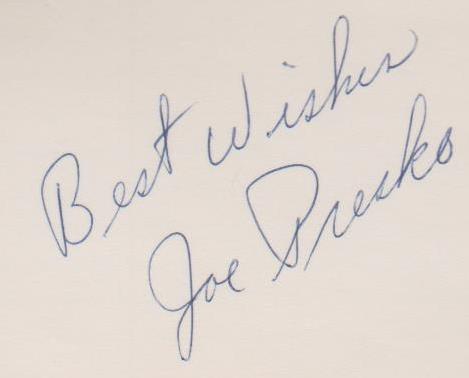 Best Wishes
Joe Presko